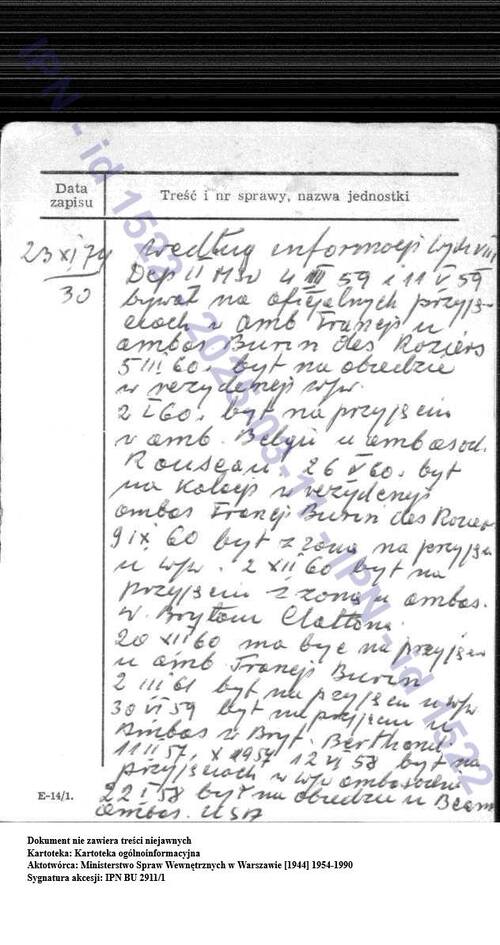 Data zapisu
Treść i nr sprawy, nazwa jednostki
23 XI 74
30
według informacji Wydz VIII
Dep II MSW 4 III 59 i 11 V 59
bywał na oficjalnych przyję-
ciach w amb Francji u
ambas. Burin des Roziers
5 III 60. był na obiedzie
w rezydencji w/w.
2 I 60. był na przyjęciu
w amb. Belgii u ambasad.
26 V 60. był
na kolacji w rezydencji
ambas Francji Burin des Rozier
9 IX 60 był z żoną na przyję
u w/w. 2 XII 60 był na
przyjęciu z żoną u ambas.
W. Brytanii
20 XII 60 ma być na przyjęciu
u amb Francji Burin
2 III 61 był na przyjęciu u w/w
30 VI 59 był na przyjęciu u
Ambas W Bryt. Berthoud.
11 II 57, X 1957 12 VI 58 był na
przyjęciach u w/w ambasadora
22 I 58 był na obiedzie u Beam
ambas. USA
E-14/1.
IPN - id 1522 - IPN - id 1522
Dokument nie zawiera treści niejawnych
Kartoteka: Kartoteka ogólnoinformacyjna
Aktotwórca: Ministerstwo Spraw Wewnętrznych w Warszawie [1944] 1954-1990
Sygnatura akcesji: IPN BU 2911/1